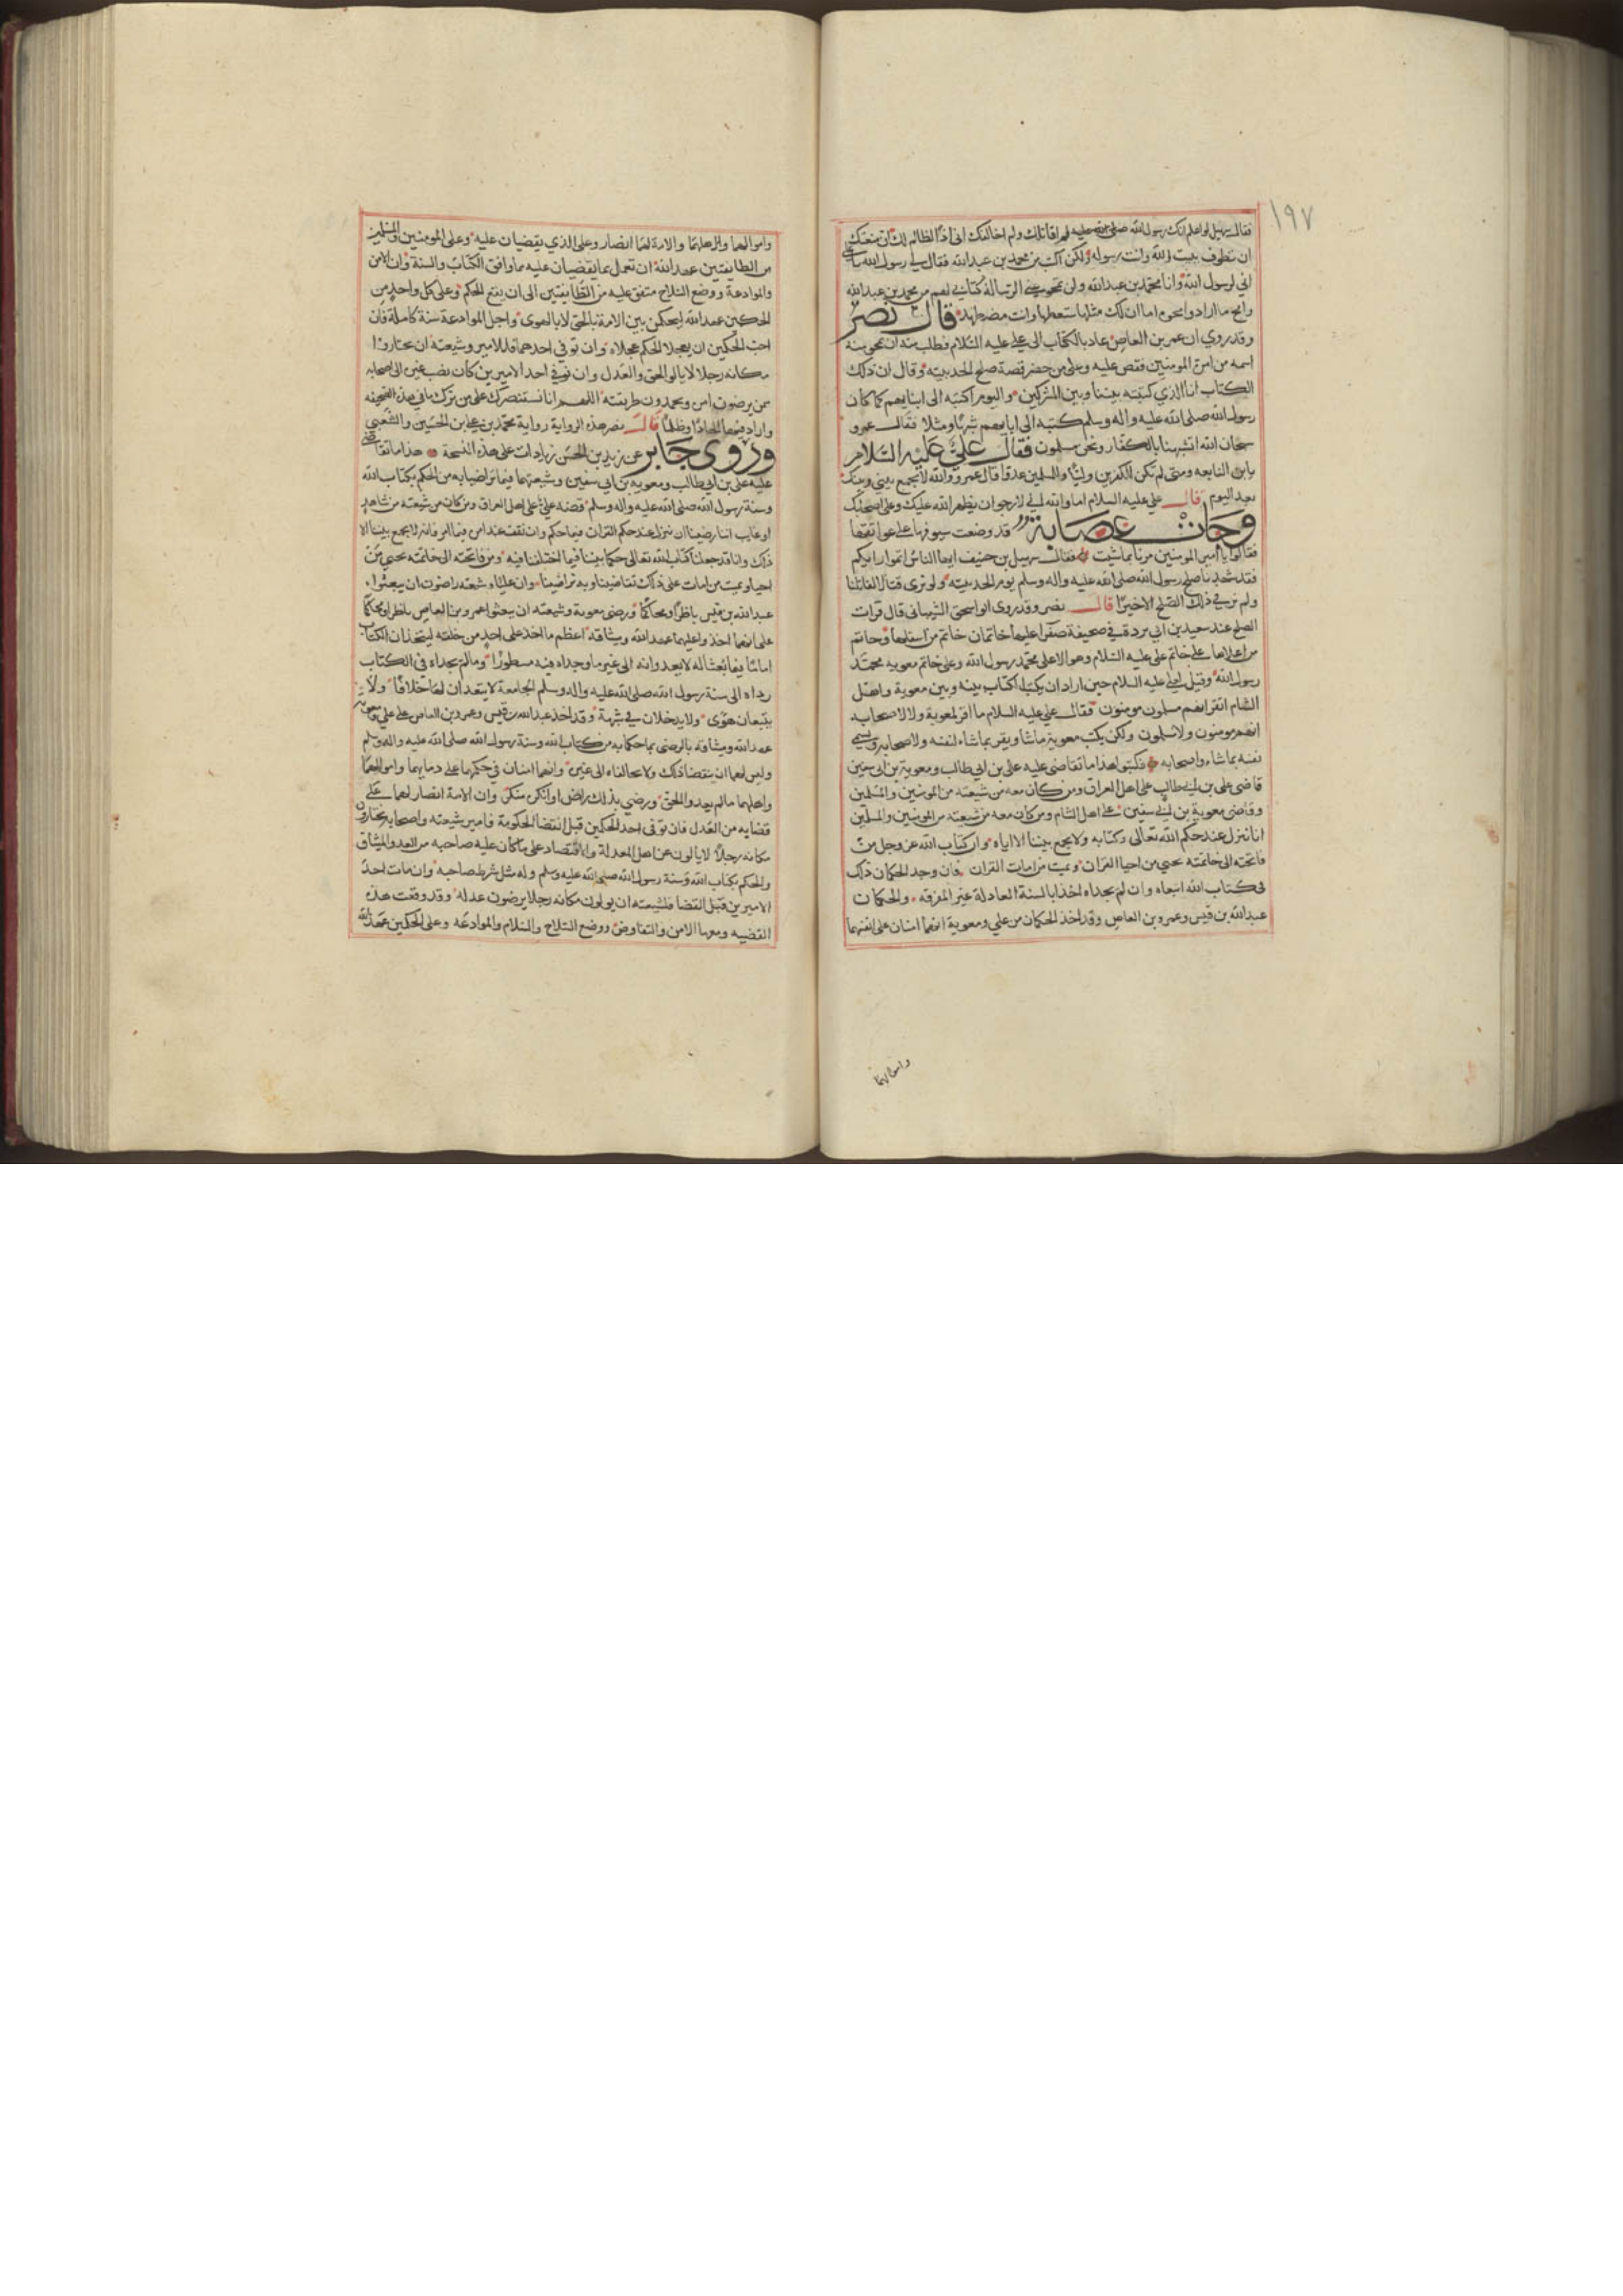 ١٩٧
فقال سهيل لو اعلم انك رسول الله صلى الله عليه لم اقاتلك ولم اخالفك اني اذا لظالم لك ان منعتك
ان تطوف ببيت الله وانت رسوله ولكن اكتب من محمد بن عبد الله فقال لي رسول الله يا علي
اني لرسول الله وانا محمد بن عبد الله ولن تمحو عني الرسالة كتابي لهم من محمد بن عبد الله
وامح ما ارادوا محوه اما ان لك مثلها ستعطيها وانت مضطهد قال نصر
وقد روي ان عمرو بن العاص عاد بالكتاب الى علي عليه السلام فطلب منه ان يمحو منه
اسمه من امرة المومنين فقص عليه وعلى من حضر قصة صلح الحديبية وقال ان ذلك
الكتاب انا الذي كتبته بيننا وبين المشركين واليوم اكتبه الى ابنايهم كما كان
رسول الله صلى الله عليه واله وسلم كتبه الى ابايهم شبها ومثلا فقال عمرو
سبحان الله اتشبهنا بالكفار ونحن مسلمون فقال علي عليه السلام
يابن النابغه ومتى لم تكن للكفرين وليا وللمسلمين عدوا فقال عمرو والله لا يجمع بيني وبينك
بعد اليوم قال علي عليه السلام اما والله اني لارجو ان يظهر الله عليك وعلى اصحابك
وجات عصابة قد وضعت سيوفها على عواتقها
فقالوا يا امير المومنين مرنا بما شيت فقال سهيل بن حنيف ايها الناس اتهموا رايكم
فقد شهدنا صلح رسول الله صلى الله عليه واله وسلم يوم الحديبية ولو نرى قتالا لقاتلنا
ولم نر في ذلك الصلح الا خيرا قال نصر وقد روى ابو اسحق الشيباني قال قرات
الصلح عند سعيد بن ابي بردة في صحيفة صفرا عليها خاتمان خاتم من اسفلها وخاتم
من اعلاها على خاتم علي عليه السلام وهو الاعلى محمد رسول الله وعلى خاتم معوية محمد
رسول الله وقيل لعلي عليه السلام حين اراد ان يكتب الكتاب بينه وبين معوية واهل
الشام اتقر انهم مسلمون مومنون فقال علي عليه السلام ما اقر لمعوية ولا لاصحابه
انهم مومنون ولا مسلمون ولكن يكتب معوية ما شا ويقر بما شاء لنفسه ولاصحابه ويسمي
نفسه بما شاء واصحابه فكتبوا هذا ما تقاضى عليه علي بن ابي طالب ومعوية بن ابي سفين
قاضى علي بن ابي طالب على اهل العراق ومن كان معه من شيعته من المومنين والمسلمين
وقاضى معوية بن ابي سفين على اهل الشام ومن كان معه من شيعته من المومنين والمسلمين
انا ننزل عند حكم الله تعالى وكتابه ولا يجمع بيننا الا اياه وان كتاب الله عز وجل من
فاتحته الى خاتمته نحيي من احيا القران ونميت من امات القران فان وجد الحكمان ذلك
في كتاب الله اتبعاه وان لم يجداه اخذا بالسنة العادلة غير المفرقه والحكمان
عبد الله بن قيس وعمرو بن العاص وقد اخذ الحكمان من علي ومعوية انهما امنان على انفسهما
واموالهما
واموالهما واهلهما والامة لهما انصار وعلى الذي يقضيان عليه وعلى المومنين والمسلمين
من الطايفتين عهد الله ان نعمل بما يقضيان عليه مما وافق الكتاب والسنة وان الامن
والموادعة ووضع السلاح متفق عليه من الطايفتين الى ان يقع الحكم وعلى كل واحد من
الحكمين عهد الله ليحكمن بين الامة بالحق لا بالهوى واجل الموادعة سنة كاملة فان
احب الحكمين ان يعجلا الحكم عجلاه وان توفي احدهما فللامير وشيعته ان يختاروا
مكانه رجلا لا يالو الحق والعدل وان توفي احد الاميرين كان نصب غيره الى اصحابه
ممن يرضون امره ويحمدون طريقته اللهم انا نستنصرك على من ترك ما في هذه الصحيفه
واراد فيها الحادا وظلما قال نصر هذه الرواية رواية محمد بن علي بن الحسين والشعبي
وروى جابر عن زيد بن الحسن زيادات على هذه النسخة هذا ما تقاضى
عليه علي بن ابي طالب ومعويه بن ابي سفين وشيعتهما فيما تراضيا به من الحكم بكتاب الله
وسنة رسول الله صلى الله عليه واله وسلم قضية علي على اهل العراق ومن كان من شيعته من شاهد
او غايب اننا رضينا ان ننزل عند حكم القران فيما حكم وان نقف عند امره فيما امر فانه لا يجمع بيننا الا
ذلك وانا قد جعلنا كتاب الله تعالى حكما بيننا فيما اختلفنا فيه من فاتحته الى خاتمته نحيي من
احيا ونميت من امات على ذلك تقاضينا وبه تراضينا وان عليا وشيعته راضون ان يبعثوا
عبد الله بن قيس ناظرا ومحاكما ورضي معوية وشيعته ان يبعثوا عمرو بن العاص ناظرا ومحاكما
على انهما اخذوا عليهما عهد الله وميثاقه اعظم ما اخذ على احد من خلقه ليتخذان الكتاب
اماما فيما بعثا له لا يعدوانه الى غيره ما وجداه فيه مسطورا وما لم يجداه في الكتاب
رداه الى سنة رسول الله صلى الله عليه واله وسلم الجامعة لا يتعمدان لهما خلافا ولا
يتبعان هوى ولا يدخلان في شبهة وقد اخذ عبد الله بن قيس وعمرو بن العاص على علي ومعوية
عهد الله وميثاقه بالرضى بما حكما به من كتاب الله وسنة رسول الله صلى الله عليه واله وسلم
وليس لهما ان ينقضا ذلك ولا يخالفاه الى غيره وانهما امنان في حكمهما على دمايهما واموالهما
واهلهما ما لم يعدوا الحق ورضي بذلك راض او انكره منكر وان الامة انصار لهما على
قضايه من العدل فان توفي احد الحكمين قبل انقضا الحكومة فامير شيعته واصحابه يختارون
مكانه رجلا لا يالون عن اهل المعدلة والاقتصاد على ما كان عليه صاحبه من العهد والميثاق
والحكم بكتاب الله وسنة رسول الله صلى الله عليه وسلم وله مثل شرط صاحبه وان مات احد
الاميرين قبل القضا فلشيعته ان يولون مكانه رجلا يرضون عدله وقد وقعت هذه
القضيه ومعها الامن والتفاوض ووضع السلاح والسلام والموادعه وعلى الحكمين عهد الله